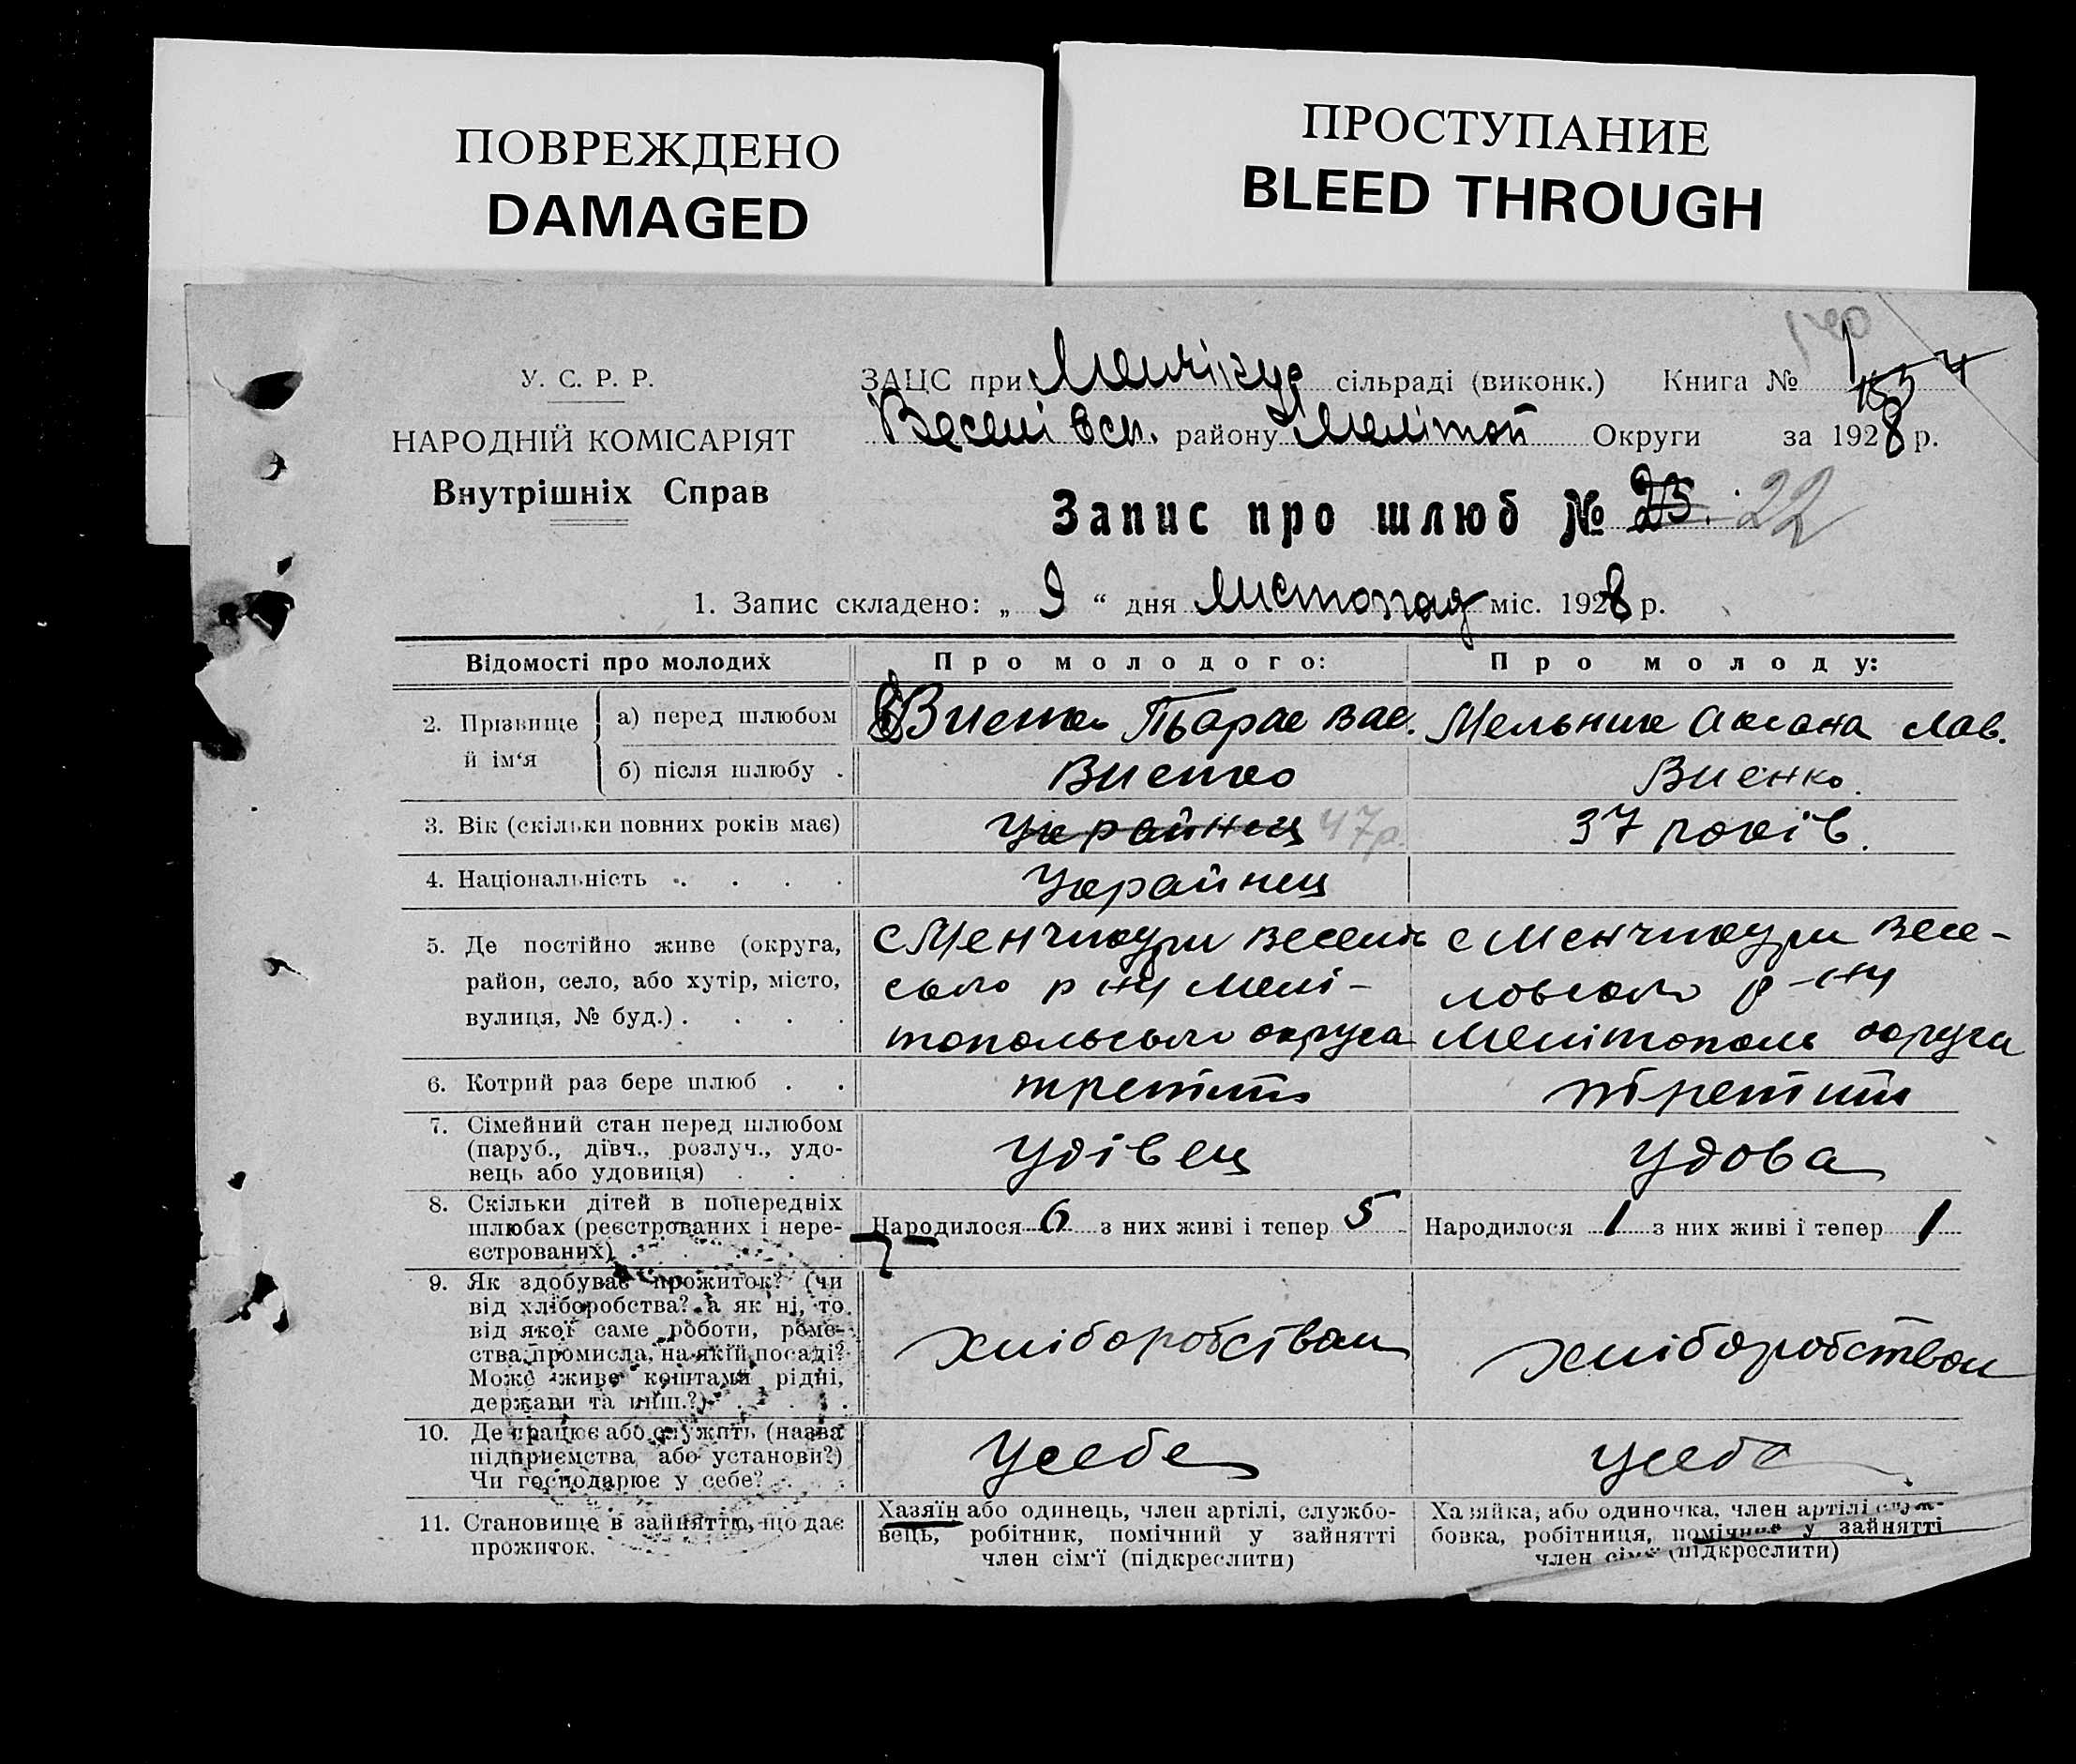 ПОВРЕЖДЕНО
DAMAGED
ПРОСТУПАНИЕ
BLEED THROUGH
У. С. Р. Р.
НАРОДНІЙ КОМІСАРІЯТ
Внутрішніх Справ
ЗАЦС при Менчікур сільраді (виконк.) Книга №
Веселівсь. району Мелітоп Округи за 1928 р.
Запис про шлюб № 25. 22
1. Запис складено: „ 9 “ дня листопад міс. 1928 р.
Відомості про молодих Про молодого: Про молоду:
2. Прізвище й ім‘я
а) перед шлюбом Виенко Тьарас Вас. Мельник Аксана Лав.
б) після шлюбу . Виенко Виенко.
3. Вік (скільки повних років має) Украйнец 47р. 37 років.
4. Національність . . . . Украйнец
5. Де постійно живе (округа, район, село, або хутір, місто, вулиця, № буд.) . . . .
с Менчикури Веселів
ського р ну Мелі-
топольського округа
с Менчикури Весе-
ловського р-ну
Мелітополь округи
6. Котрий раз бере шлюб . . третий третий
7. Сімейний стан перед шлюбом
(паруб., дівч., розлуч., удо-
вець або удовиця) . . . удівец удова
8. Скільки дітей в попередніх
шлюбах (реєстрованих і нере-
єстрованих) . Народилося 6 з них живі і тепер 5 Народилося 1 з них живі і тепер 1
9. Як здобуває прожиток? (чи
від хліборобства? а як ні, то
від якої саме роботи, реме-
ства, промисла, на якій посаді?
Може живе коштами рідні,
держави та инш.?) . . . хліборобством хліборобством
10. Де працює або служить (назва
підприємства або установи?)
Чи господарює у себе? . . Усебе Усебе
11. Становище в зайняттю, що дає
прожиток.
Хазяїн або одинець, член артілі, службо-
вець, робітник, помічний у зайнятті
член сім‘ї (підкреслити)
Хазяйка, або одиночка, член артілі служ-
бовка, робітниця, помічник у зайнятті
член сім‘ї (підкреслити)